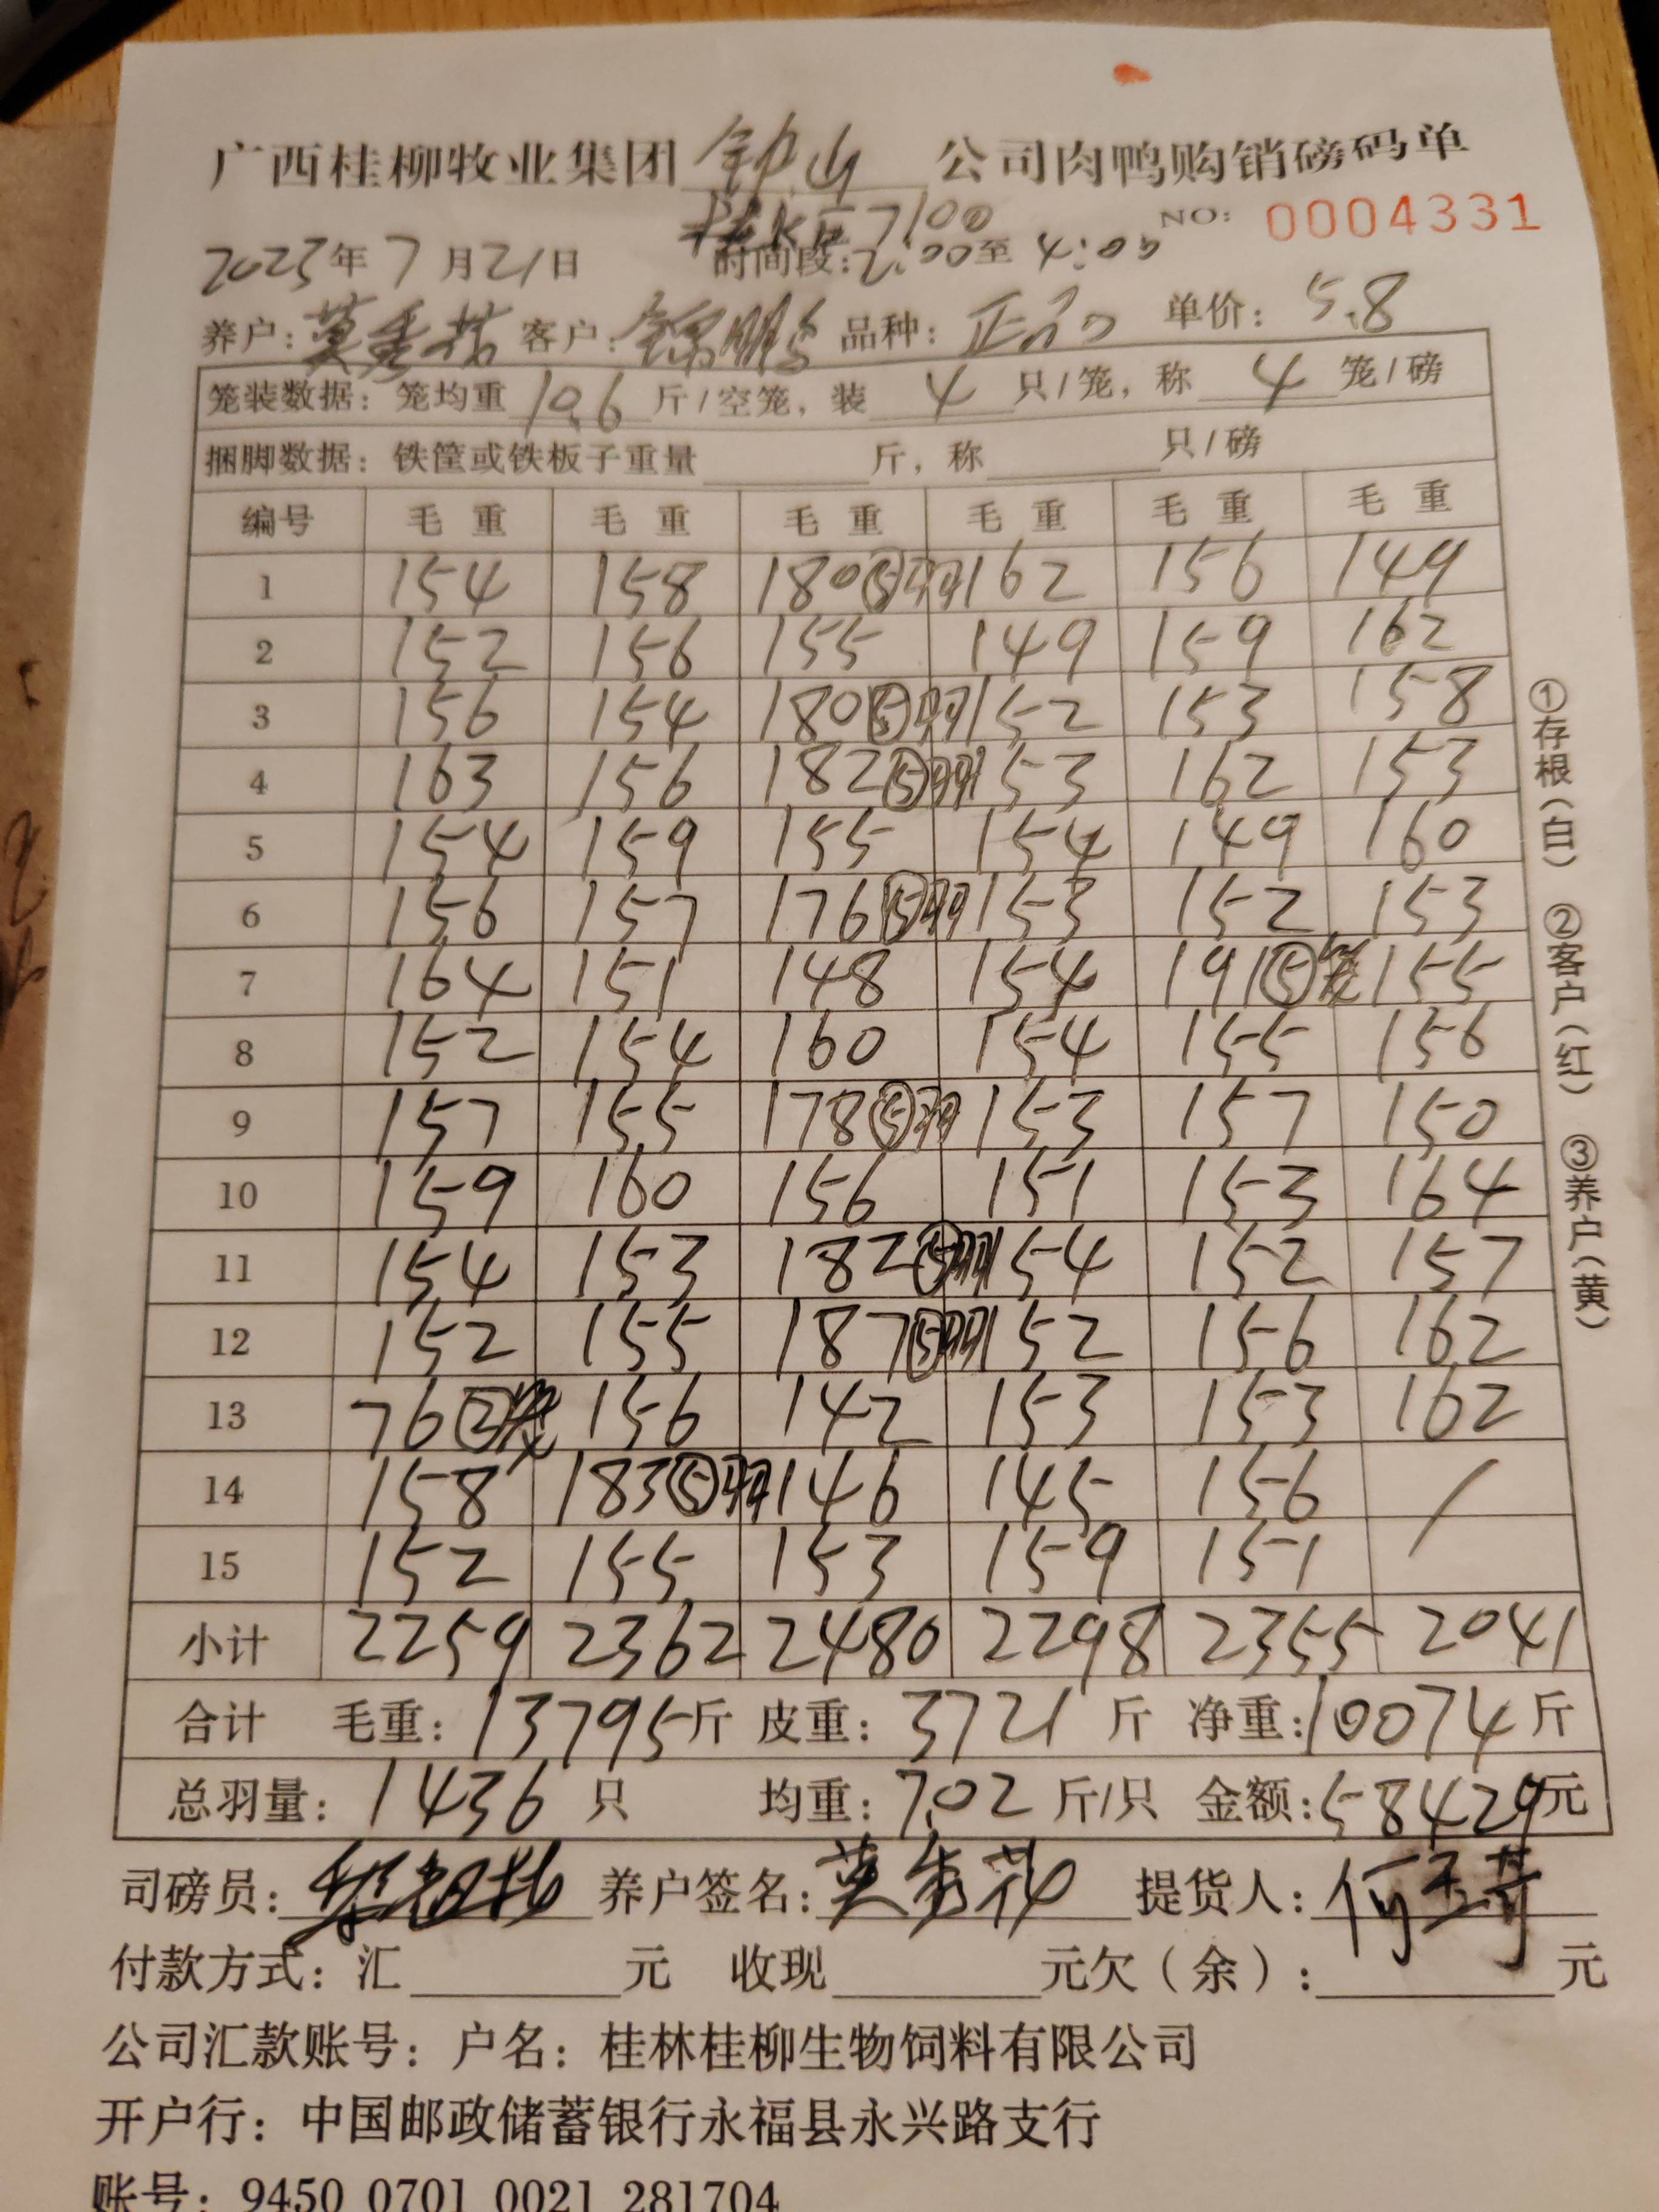 广西桂柳牧业集团 钟山 公司肉鸭购销磅码单
7100
NO: 0004331
2023年7月21日 时间段: 2:00至4:05
养户: 莫秀花 客户: 锦鹏 品种: 正品 单价: 5.8
笼装数据: 笼均重 10.6 斤/空笼, 装 4 只/笼, 称 4 笼/磅
捆脚数据: 铁筐或铁板子重量 斤, 称 只/磅
编号 毛重 毛重 毛重 毛重 毛重 毛重
1 154 158 180⑤ 162 156 149
2 152 156 155 149 159 162
3 156 154 180⑤ 152 153 158
4 163 156 182⑤ 153 162 153
5 154 159 155 154 149 160
6 156 157 176⑤ 153 152 153
7 164 151 148 154 191⑤笼 155
8 152 154 160 154 155 156
9 157 155 178⑤ 153 157 150
10 159 160 156 151 153 164
11 154 153 182⑤ 154 152 157
12 152 155 187⑤ 152 156 162
13 76②笼 156 142 153 153 162
14 158 183⑤ 146 145 156 /
15 152 155 153 159 151
小计 2259 2362 2480 2298 2355 2041
合计 毛重: 13795斤 皮重: 3721斤 净重: 10074斤
总羽量: 1436只 均重: 7.02斤/只 金额: 58429元
司磅员: 养户签名: 莫秀花 提货人:
付款方式: 汇 元 收现 元欠(余): 元
公司汇款账号: 户名: 桂林桂柳生物饲料有限公司
开户行: 中国邮政储蓄银行永福县永兴路支行
账号: 9450 0701 0021 281704
①存根(白) ②客户(红) ③养户(黄)